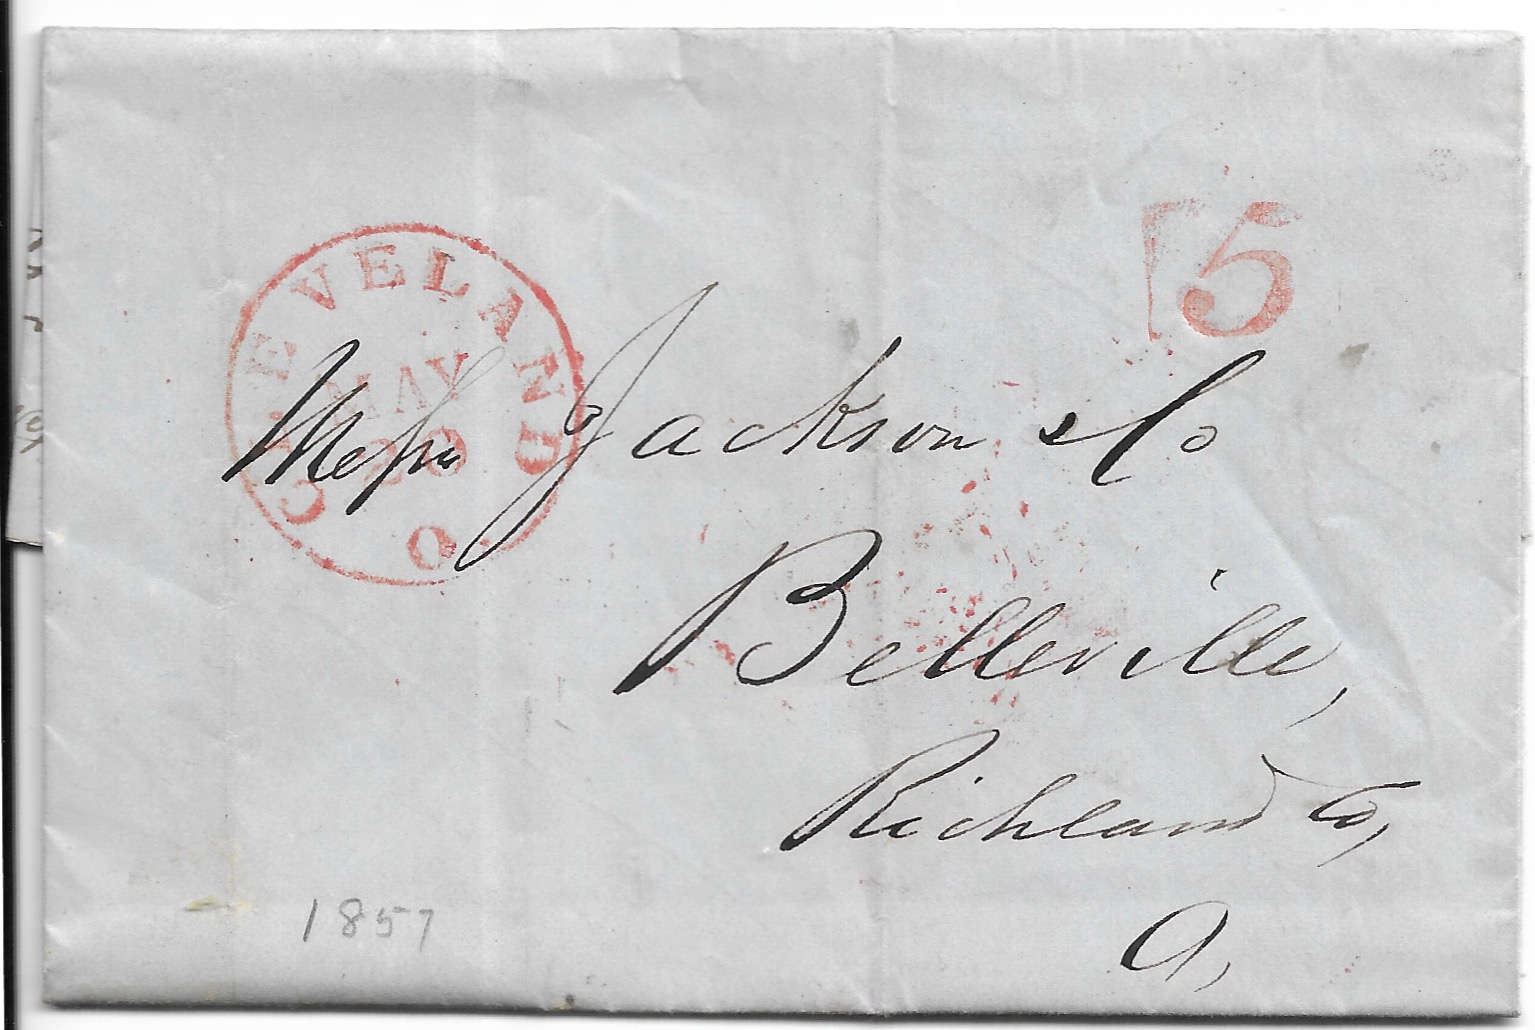 CLEVELAND O.
MAY
29
5
Messrs Jackson & Co
Belleville,
Richland Co,
O,
1857